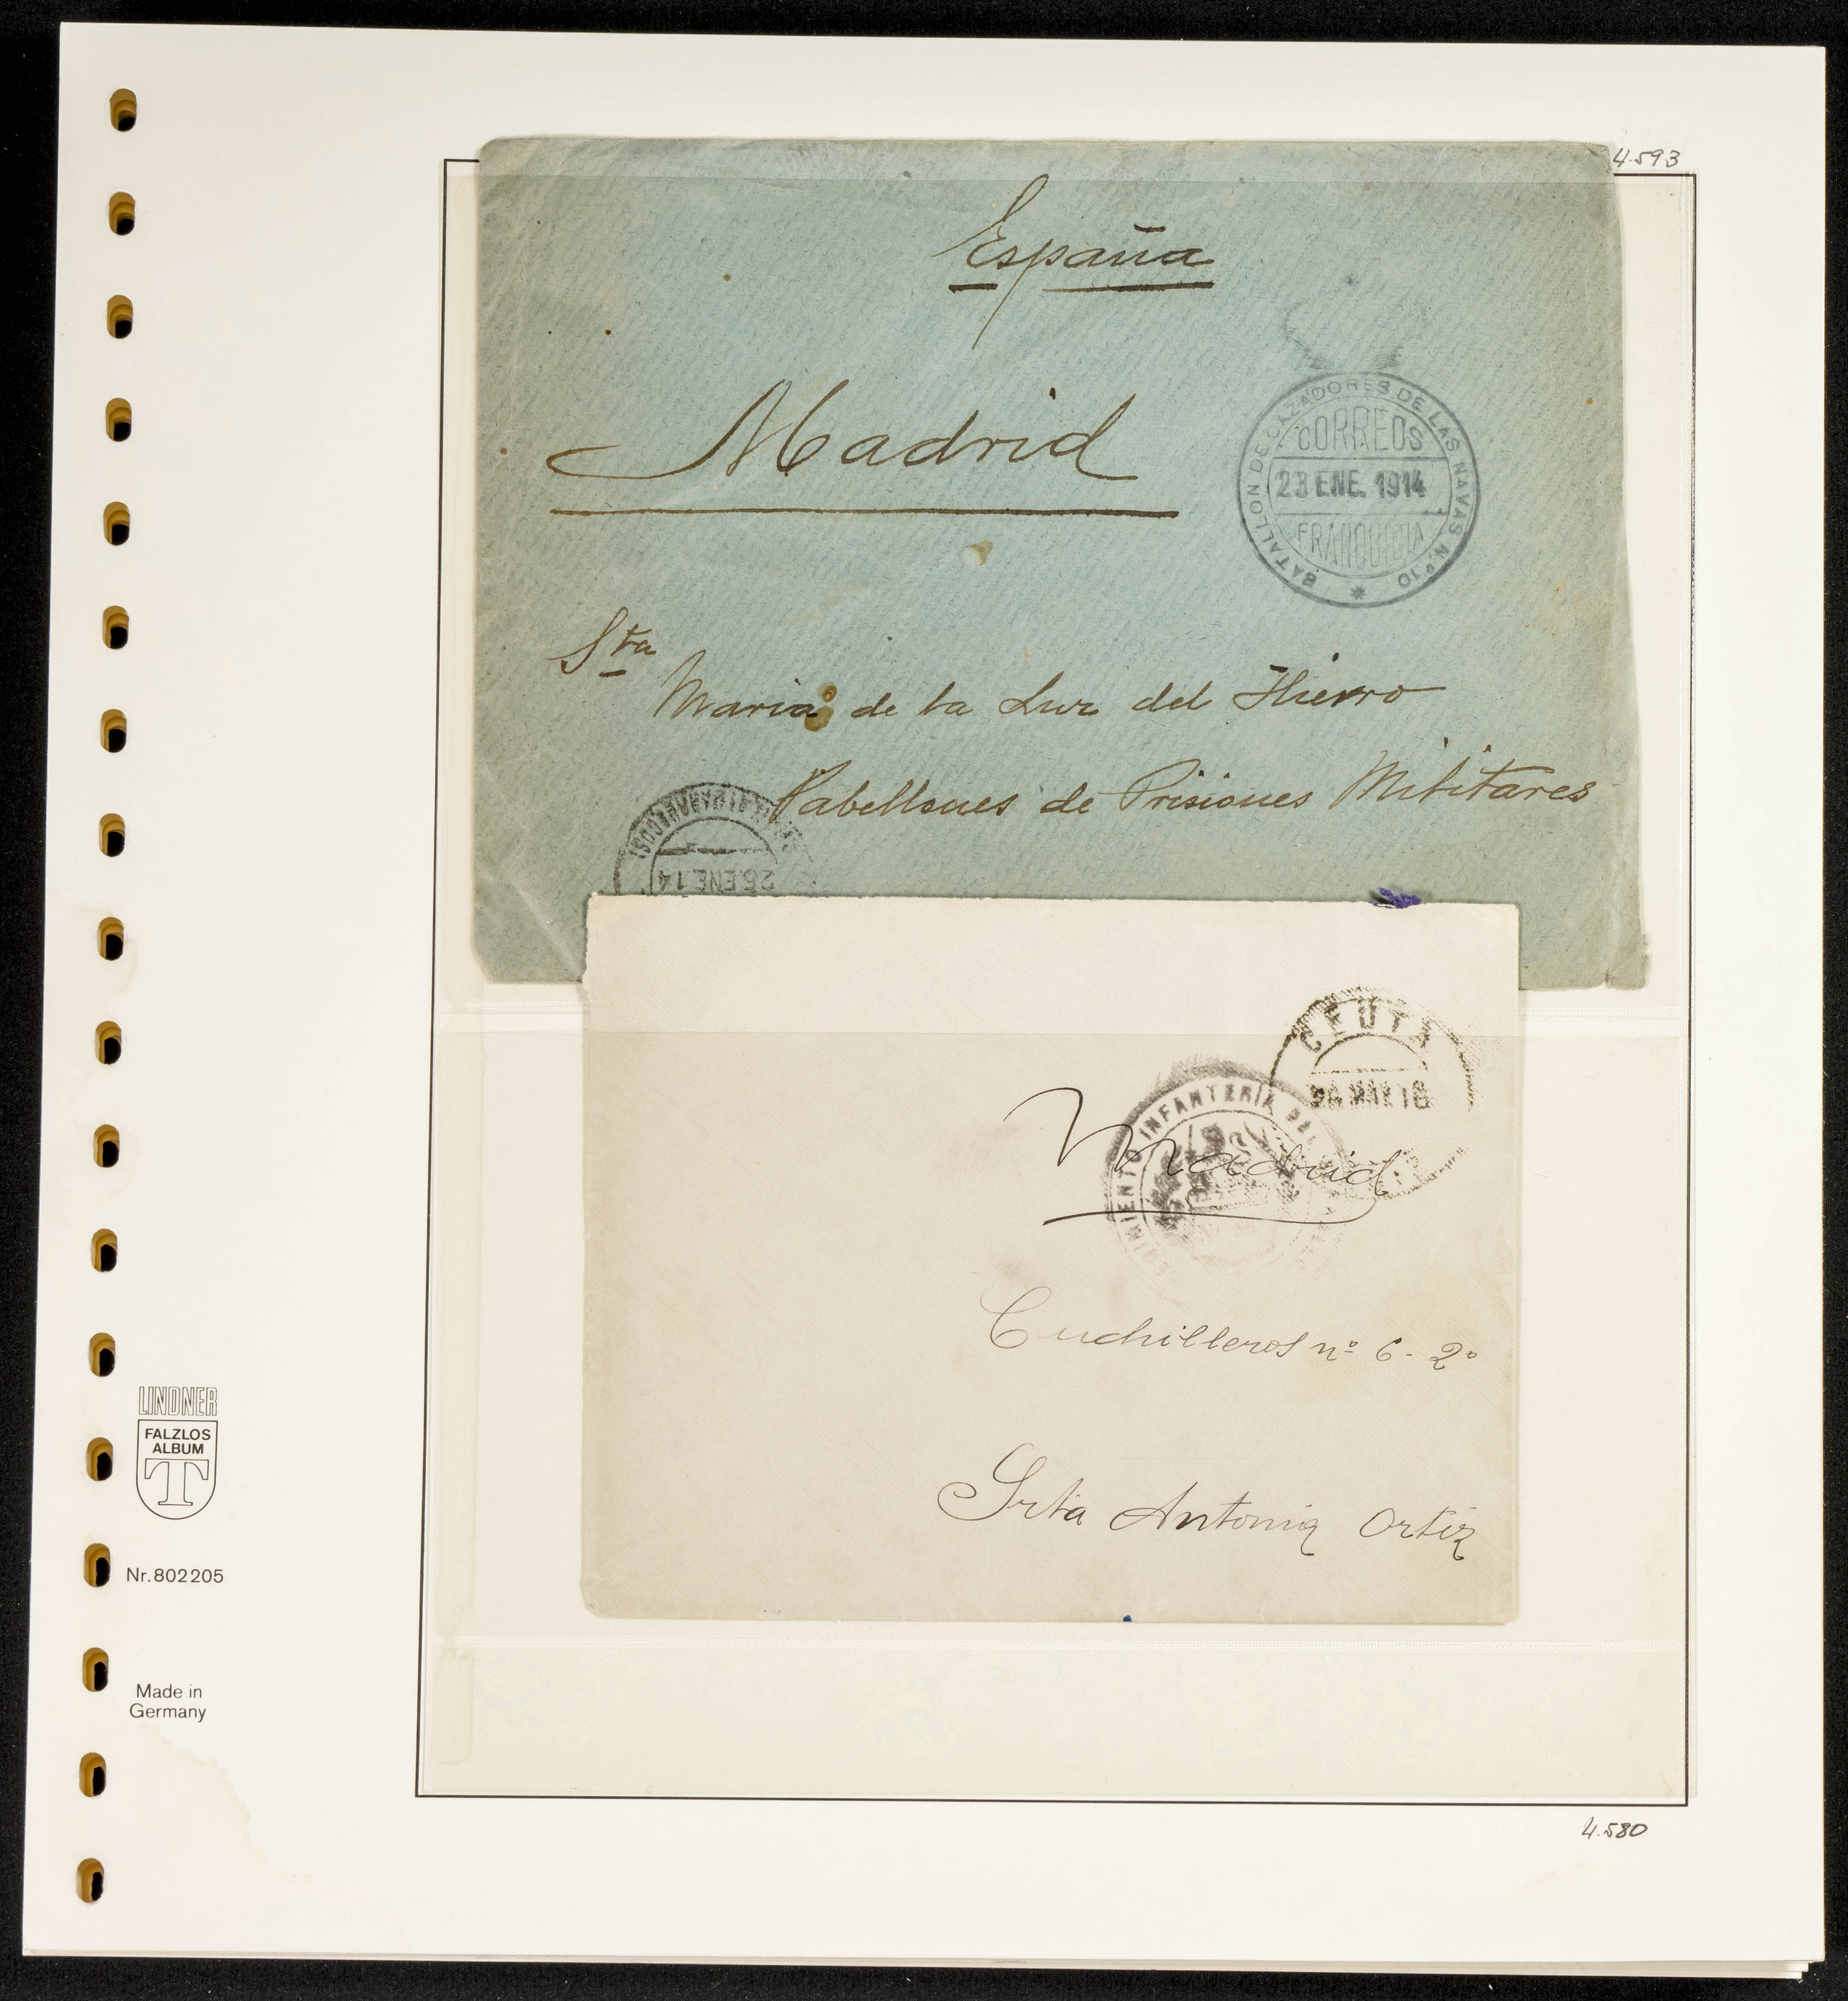 4.593
España
Madrid
BATALLON DE CAZADORES DE LAS NAVAS N.º 10
CORREOS
23 ENE. 1914
FRANQUICIA
Sta
Maria de la Luz del Hierro
Pabellones de Prisiones Militares
26 ENE 14
CEUTA
MAR 16
INFANTERÍA DEL
Madrid
Cuchilleros nº 6 - 2º
Srta Antonia Ortiz
LINDNER
FALZLOS
ALBUM
T
Nr. 802205
Made in
Germany
4.580